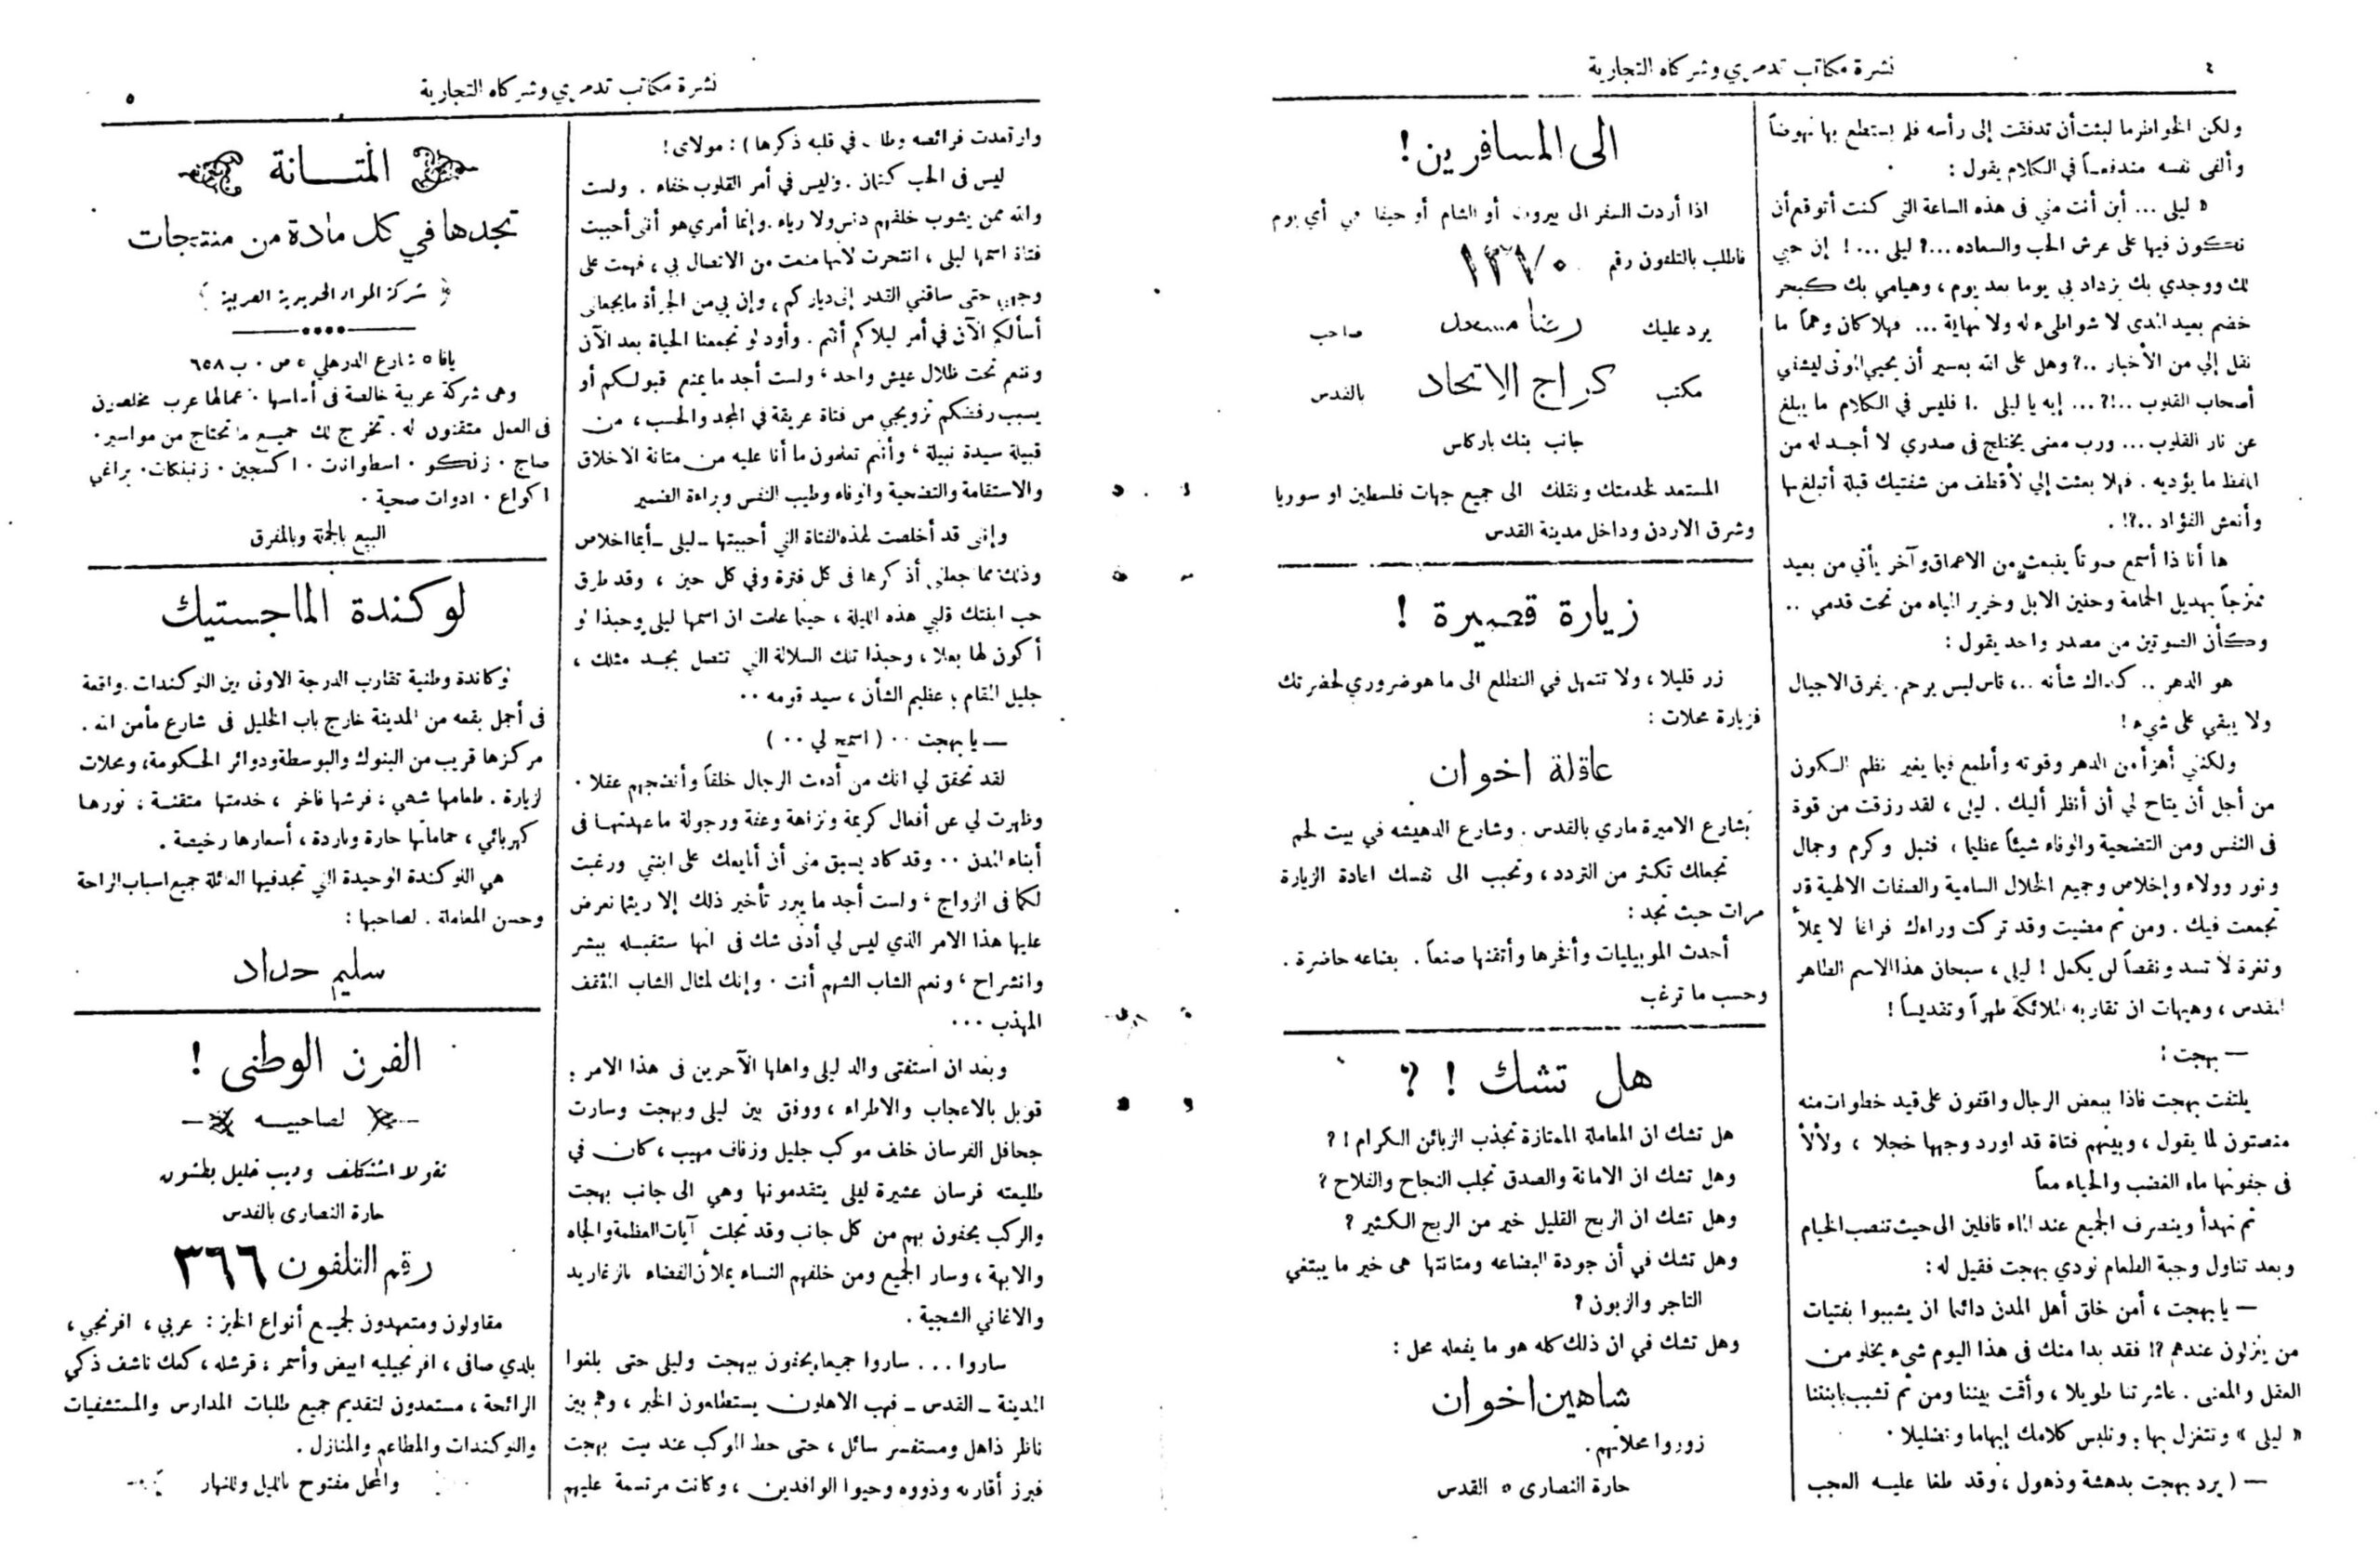 ٤
نشرة مكاتب تدمري وشركاه التجارية
ولكن الخواطر ما لبثت أن تدفقت إلى رأسه فلم يستطع بها نهوضاً
وألفى نفسه مندفعاً في الكلام يقول :
« ليلى ... أين أنت مني فى هذه الساعة التى كنت أتوقع أن
تتكون فيها على عرش الحب والسعاده ...? ليلى ...! إن حبي
لك ووجدي بك يزداد بي يوما بعد يوم ، وهيامي بك كبحر
خضم بعيد المدى لا شواطىء له ولا نهاية ... فهلا كان وهماً ما
نقل إلي من الأخبار ..? وهل على الله بعسير أن يحيي الموتى ليشفي
أصحاب القلوب ..!? ... إيه يا ليلى .. فليس في الكلام ما يبلغ
عن نار القلوب ... ورب معنى يختلج فى صدري لا أجد له من
اللفظ ما يؤديه . فهلا بعثت إلي لأقطف من شفتيك قبلة أتبلغ بها
وأنعش الفؤاد ..?! .
ها أنا ذا أسمع صوتاً ينبعث من الاعماق وآخر يأتي من بعيد
ممتزجاً بهديل الحمامة وحنين الابل وخرير المياه من تحت قدمي ..
وكأن الصوتين من مصدر واحد يقول :
هو الدهر .. كذلك شأنه .. ، قاس ليس يرحم . يفرق الاجيال
ولا يبقي على شيء !
ولكنني أهزأ من الدهر وقوته وأطمع فيما يغير نظم الكون
من أجل أن يتاح لي أن أنظر أليك . ليلى ، لقد رزقت من قوة
فى النفس ومن التضحية والوفاء شيئاً عظيما ، فنبل وكرم وجمال
ونور وولاء وإخلاص وجميع الخلال السامية والصفات الالهية قد
تجمعت فيك . ومن ثم مضيت وقد تركت وراءك فراغا لا يملأ
وثغرة لا تسد ونقصاً لن يكمل ! ليلى ، سبحان هذا الاسم الطاهر
المقدس ، وهيهات ان تقاربه الملائكة طهراً وتقديساً !
— بهجت :
يلتفت بهجت فاذا ببعض الرجال واقفون على قيد خطوات منه
منصتون لما يقول ، وبينهم فتاة قد اورد وجهها خجلا ، ولألأ
فى جفونها ماء الغضب والحياء معاً
ثم نهدأ وينصرف الجميع عند الماء قافلين الى حيث تنصب الخيام
وبعد تناول وجبة الطعام نودي بهجت فقيل له :
— يا بهجت ، أمن خلق أهل المدن دائما ان يشببوا بفتيات
من ينزلون عندهم ?! فقد بدا منك فى هذا اليوم شيء يخلو من
العقل والمعنى . عاشرتنا طويلا ، وأقمت بيننا ومن ثم تشبب بابنتنا
« ليلى » وتتغزل بها ; وتلبس كلامك إبهاما وتضليلا ·
— ( يرد بهجت بدهشة وذهول ، وقد طغا عليه العجب
الى المسافرين !
اذا أردت السفر الى بيروت أو الشام أو حيفا في أي يوم
فاطلب بالتلفون رقم
يرد عليك رضا صاحب
مكتب كراج الاتحاد بالقدس
جانب بنك باركلس
المستعد لخدمتك ونقلك الى جميع جهات فلسطين او سوريا
وشرق الاردن وداخل مدينة القدس
زيارة قصيرة !
زر قليلا ، ولا تتمهل في التطلع الى ما هو ضروري لحضرتك
فزيارة محلات :
عاقلة اخوان
بشارع الاميرة ماري بالقدس . وشارع الدهيشه في بيت لحم
تجعلك تكثر من التردد ، وتحبب الى نفسك اعادة الزيارة
مرات حيث تجد :
أحدث الموبيليات وأفخرها وأتقنها صنعاً . بضاعه حاضرة .
وحسب ما ترغب
هل تشك ! ?
هل تشك ان المعاملة الممتازة تجذب الزبائن الكرام !?
وهل تشك ان الامانة والصدق تجلب النجاح والفلاح ?
وهل تشك ان الربح القليل خير من الربح الكثير ?
وهل تشك في أن جودة البضاعه ومتانتها هى خير ما يبتغي
التاجر والزبون ?
وهل تشك في ان ذلك كله هو ما يفعله محل :
شاهين اخوان
زوروا محلاتهم.
حارة النصارى ٥ القدس
نشرة مكاتب تدمري وشركاه التجارية
٥
وارتعدت فرائصه وطا في قلبه ذكرها ) : مولاى !
ليس فى الحب كتمان . وليس في أمر القلوب خفاء . ولست
والله ممن يشوب خلقهم دنس ولا رياء . وإنما أمري هو أننى أحببت
فتاة اسمها ليلى ، انتحرت لانها منعت من الاتصال بي ، فهمت على
وجهي حتى ساقني القدر إلى دياركم ، وإن بي من الجرأة ما يجعلنى
أسألكم الآن في أمر ليلاكم أنتم . وأود لو تجمعنا الحياة بعد الآن
وننعم تحت ظلال عيش واحد ، ولست أجد ما يمنع قبولكم أو
يسبب رفضكم تزويجي من فتاة عريقة في المجد والحسب ، من
قبيلة سيدة نبيلة ، وأنتم تعلمون ما أنا عليه من متانة الاخلاق
والاستقامة والتضحية والوفاء وطيب النفس وبراءة الضمير
وإننى قد أخلصت لهذه الفتاة التي أحببتها - ليلى - أيما اخلاص
وذلك مما جعلنى أذكرها فى كل فترة وفي كل حين ، وقد طرق
حب ابنتك قلبي هذه الليلة ، حينما علمت ان اسمها ليلى وحبذا لو
أكون لها بعلا ، وحبذا تلك السلالة التي تتصل بمجد مثلك ،
جليل المقام ; عظيم الشأن ، سيد قومه ..
— يا بهجت .. ( اسمح لي .. )
لقد تحقق لي انك من أدمث الرجال خلقاً وأنضجهم عقلا .
وظهرت لي عن أفعال كريمة ونزاهة وعفة ورجولة ما عهدتها فى
أبناء المدن .. وقد كاد يسبق منى أن أبايعك على ابنتي ورغبت
لكما فى الزواج ، ولست أجد ما يبرر تأخير ذلك إلا ريثما نعرض
عليها هذا الامر الذي ليس لي أدنى شك فى انها ستقبله ببشر
وانشراح ، ونعم الشاب الشهم أنت . وإنك لمثال الشاب المثقف
المهذب ...
وبعد ان استفتى والد ليلى واهلها الآخرين فى هذا الامر :
قوبل بالاعجاب والاطراء ، ووفق بين ليلى وبهجت وسارت
جحافل الفرسان خلف موكب جليل وزفاف مهيب ، كان في
طليعته فرسان عشيرة ليلى يتقدمونها وهي الى جانب بهجت
والركب يحفون بهم من كل جانب وقد تجلت آيات العظمة والجاه
والابهة ، وسار الجميع ومن خلفهم النساء يملأن الفضاء بالزغاريد
والاغاني الشجية .
ساروا ... ساروا جميعا يحفون ببهجت وليلى حتى بلغوا
المدينة - القدس - فهب الاهلون يستطلعون الخبر ، وهم بين
ناظر ذاهل ومستفسر سائل ، حتى حط الموكب عند بيت بهجت
فبرز أقاربه وذووه وحيوا الوافدين ، وكانت مرتسمة عليهم
المتانة
تجدها في كل مادة من منتجات
شركة الموار الحريرية العربية
يافا ٥ شارع الدرهلي ٥ ص . ب ٦٥٨
وهى شركة عربية خالصة فى أساسها . عمالها عرب مخلصون
فى العمل متقنون له . تخرج لك جميع ما تحتاج من مواسير .
صاج . زنكو . اسطوانات . اكسجين . زنبكات . براغي
اكواع . ادوات صحية .
البيع بالجملة وبالمفرق
لوكندة الماجستيك
لوكاندة وطنية تقارب الدرجة الاولى بين اللوكندات . واقعة
فى أجمل بقعه من المدينة خارج باب الخليل فى شارع مأمن الله .
مركزها قريب من البنوك والبوسطة ودوائر الحكومة ، ومحلات
لزيارة . طعامها شهي ، فرشها فاخر ، خدمتها متقنة ، نورها
كهربائي ، حماماتها حارة وباردة ، أسعارها رخيصة .
هي اللوكندة الوحيدة التي تجد فيها العائلة جميع اسباب الراحة
وحسن المعاملة . لصاحبها :
سليم حداد
الفرن الوطنى !
لصاحبيه
نقولا اشتكلف وديب خليل بطشون
حارة النصارى بالقدس
رقم التلفون ٣٦٦
مقاولون ومتعهدون لجميع أنواع الخبز : عربي ، افرنجي ،
بلدي صافى ، افرنجيليه ابيض وأسمر ، قرشله ، كعك ناشف ذكي
الرائحة ، مستعدون لتقديم جميع طلبات المدارس والمستشفيات
واللوكندات والمطاعم والمنازل .
والمحل مفتوح بالليل وبالنهار